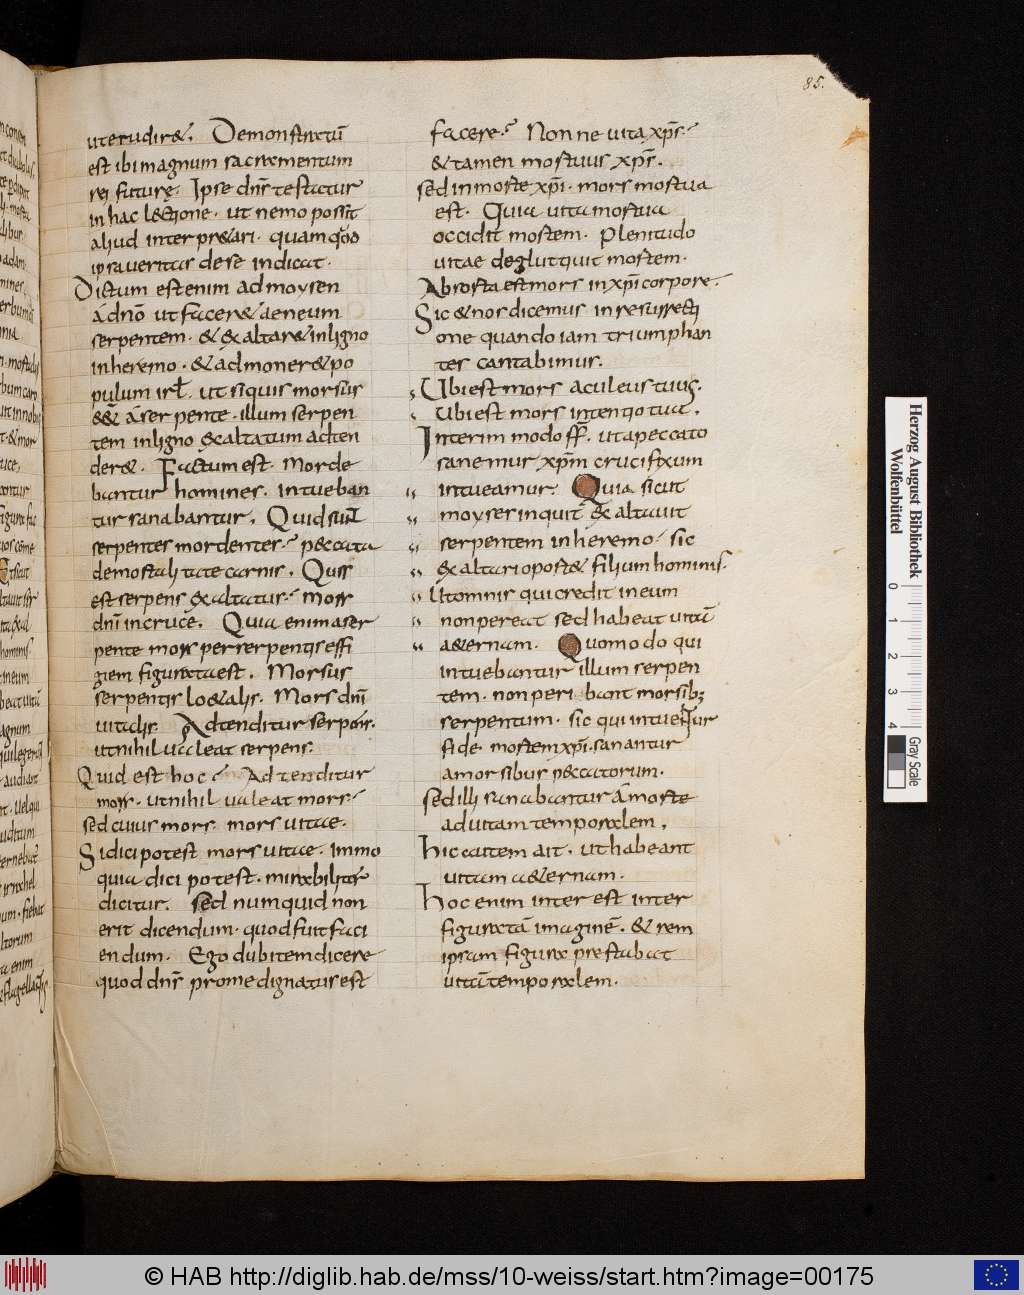 85.
ut erudir&. Demonstratū
est ibi magnum sacramentum
rei future. Ipse dn̄s testatur
in hac lectione. ut nemo possit
aliud interpr&ari. quam quōd
ipsa veritas de se indicat.
Dictum est enim ad moysen
a dn̄o ut facer& aeneum
serpentem. & exaltar& in ligno
in heremo. & admoner& po
pulum isrl. ut siquis morsus
ess& a serpente. illum serpen
tem in ligno exaltatum adten
der&. Factum est. Morde
bantur homines. intueban
tur sanabantur. Quid sunt
serpentes mordentes? peccata
de mortalitate carnis. Quis
est serpens exaltatus? mors
dn̄i in cruce. Quia enim a ser
pente mors per serpentis effi
giem figurata est. Morsus
serpentis l&alis. Mors dn̄i
vitalis. Adtenditur serpens.
ut nihil valeat serpens.
Quid est hoc? Adtenditur
mors. ut nihil valeat mors?
sed cuius mors. mors vitae.
Si dici potest mors vitae. immo
quia dici potest. mirabiliter
dicitur. Sed numquid non
erit dicendum. quod fuit faci
endum. Ego dubitem dicere
quod dn̄s pro me dignatus est
facere? Nonne vita xp̄s?
& tamen mortuus xp̄s.
sed in morte xp̄i. mors mortua
est. Quia vita mortua
occidit mortem. Plenitudo
vitae deglutivit mortem.
Absorta est mors in xp̄i corpore.
Sic & nos dicemus in resurrecti
one quando iam triumphan
tes cantabimus.
Ubi est mors aculeus tuus.
Ubi est mors intentio tua.
Interim modo ff̄. ut a peccato
sanemur xp̄m crucifixum
intueamur. Quia sicut
moyses inquit exaltavit
serpentem in heremo. sic
exaltari oport& filium hominis.
Ut omnis qui credit in eum
non pereat sed habeat vitā
a&ernam. Quomodo qui
intuebantur illum serpen
tem. non peribant morsib;
serpentum. sic qui intuentur
fide mortem xp̄i. sanantur
a morsibus peccatorum.
Sed illi sanabantur a morte
ad vitam temporalem.
hic autem ait. ut habeant
vitam a&ernam.
hoc enim interest inter
figuratā imaginē. & rem
ipsam figura prestabat
vitā temporalem.
Herzog August Bibliothek
Wolfenbüttel
0 1 2 3 4
Gray Scale
© HAB http://diglib.hab.de/mss/10-weiss/start.htm?image=00175